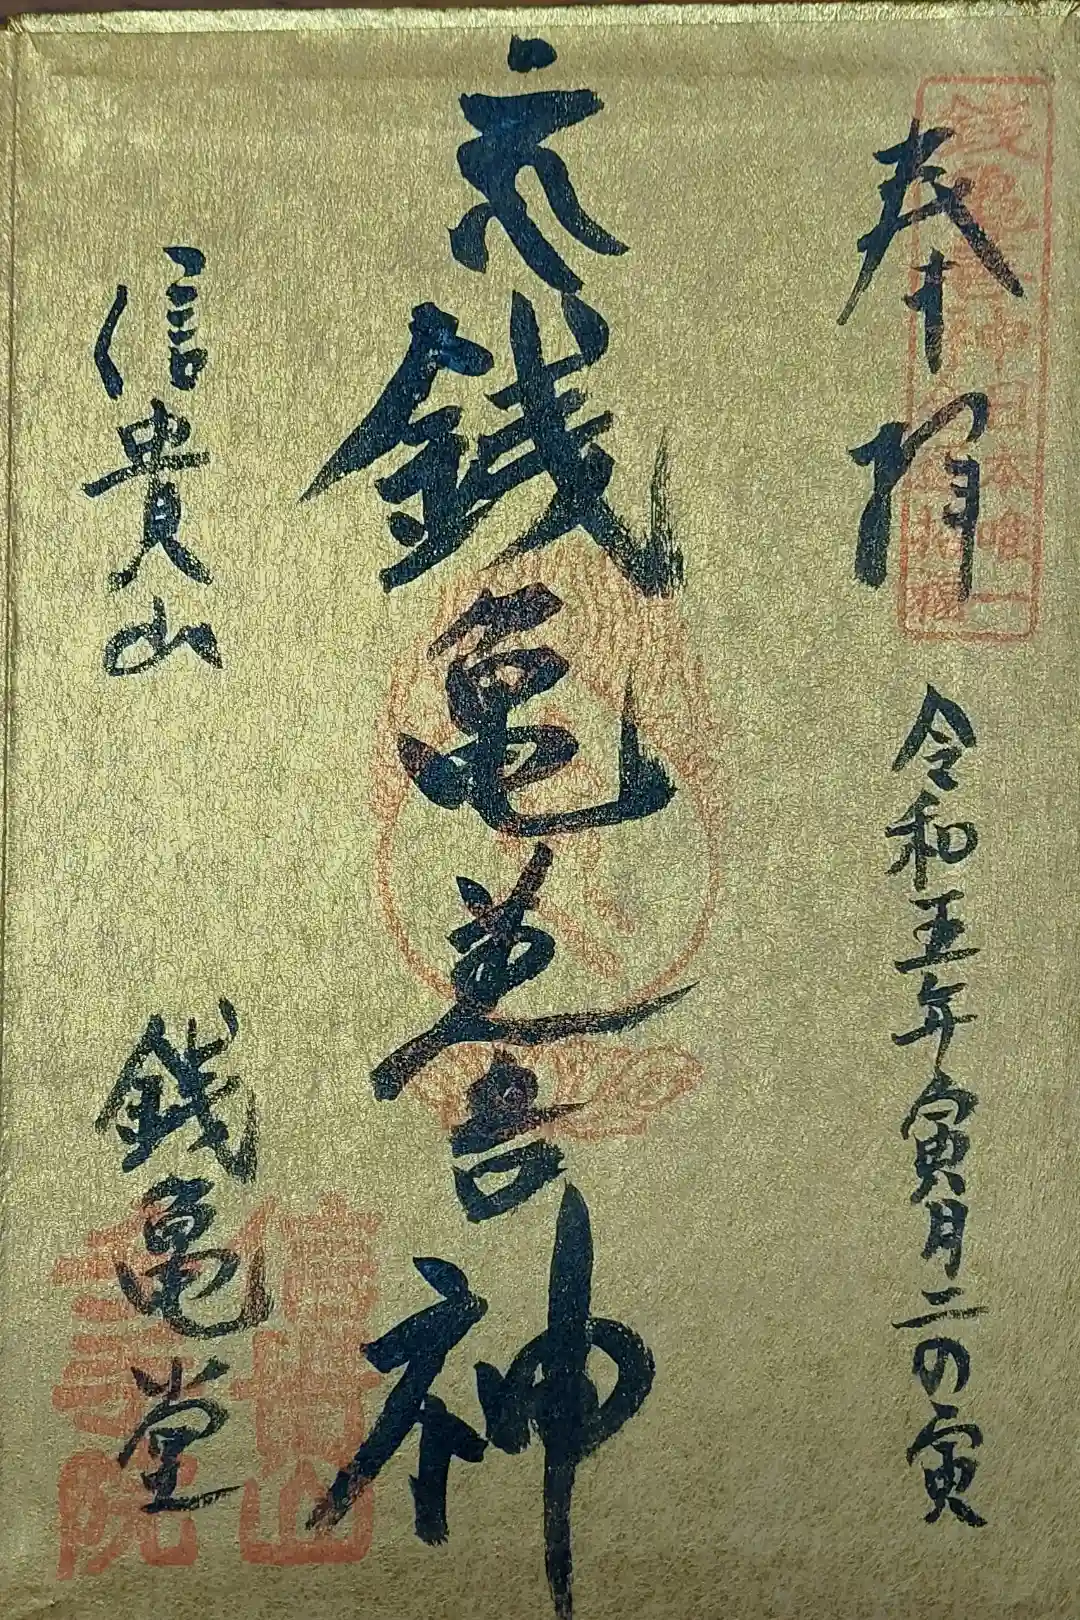 奉拝
令和五年寅月二の寅
銭亀善神
日本唯一
銭亀善神
信貴山
銭亀堂
信貴山
千手院